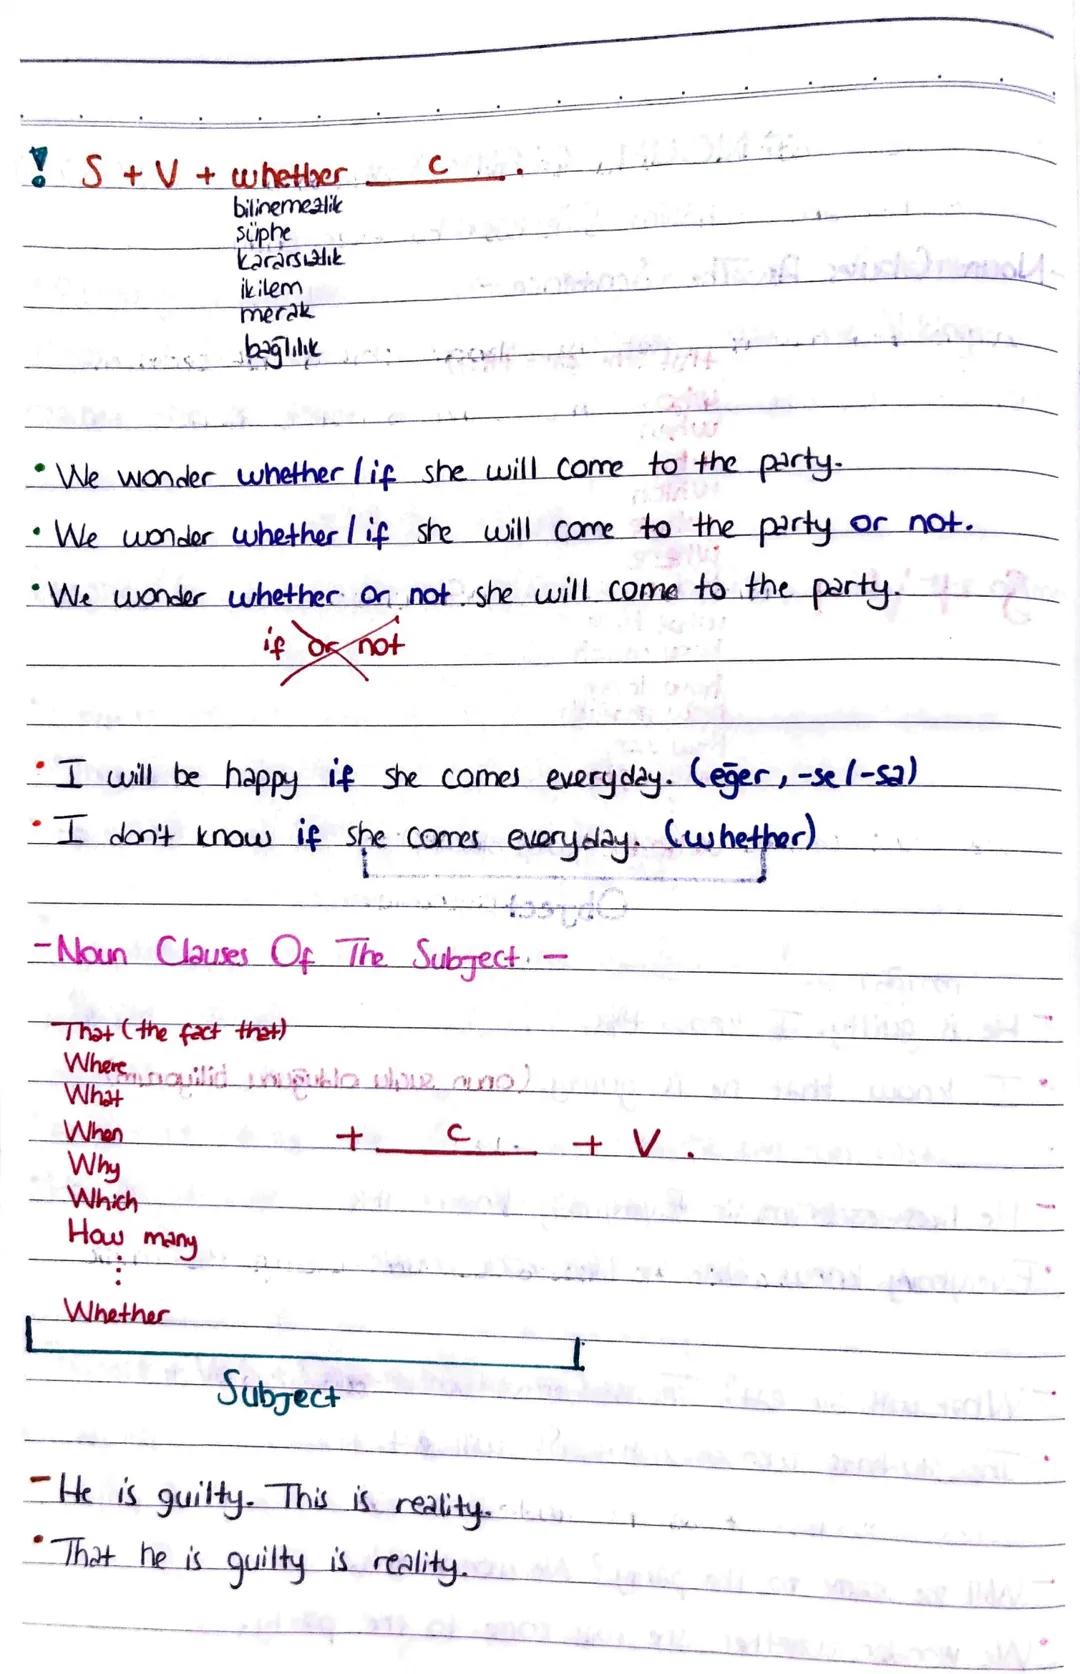 ! S + V + whether ___c___.
bilinemezlik
şüphe
kararsızlık
ikilem
merak
bağlılık
• We wonder whether / if she will come to the party.
• We wonder whether / if she will come to the party or not.
• We wonder whether or not she will come to the party.
if or not
• I will be happy if she comes everyday. (eğer, -se / -sa)
• I don't know if she comes everyday. (whether)
Object
- Noun Clauses Of The Subject. -
That (the fact that)
Where
What
When
+ ___c___ + V.
Why
Which
How many
⋮
Whether
Subject
- He is guilty. This is reality.
• That he is guilty is reality.